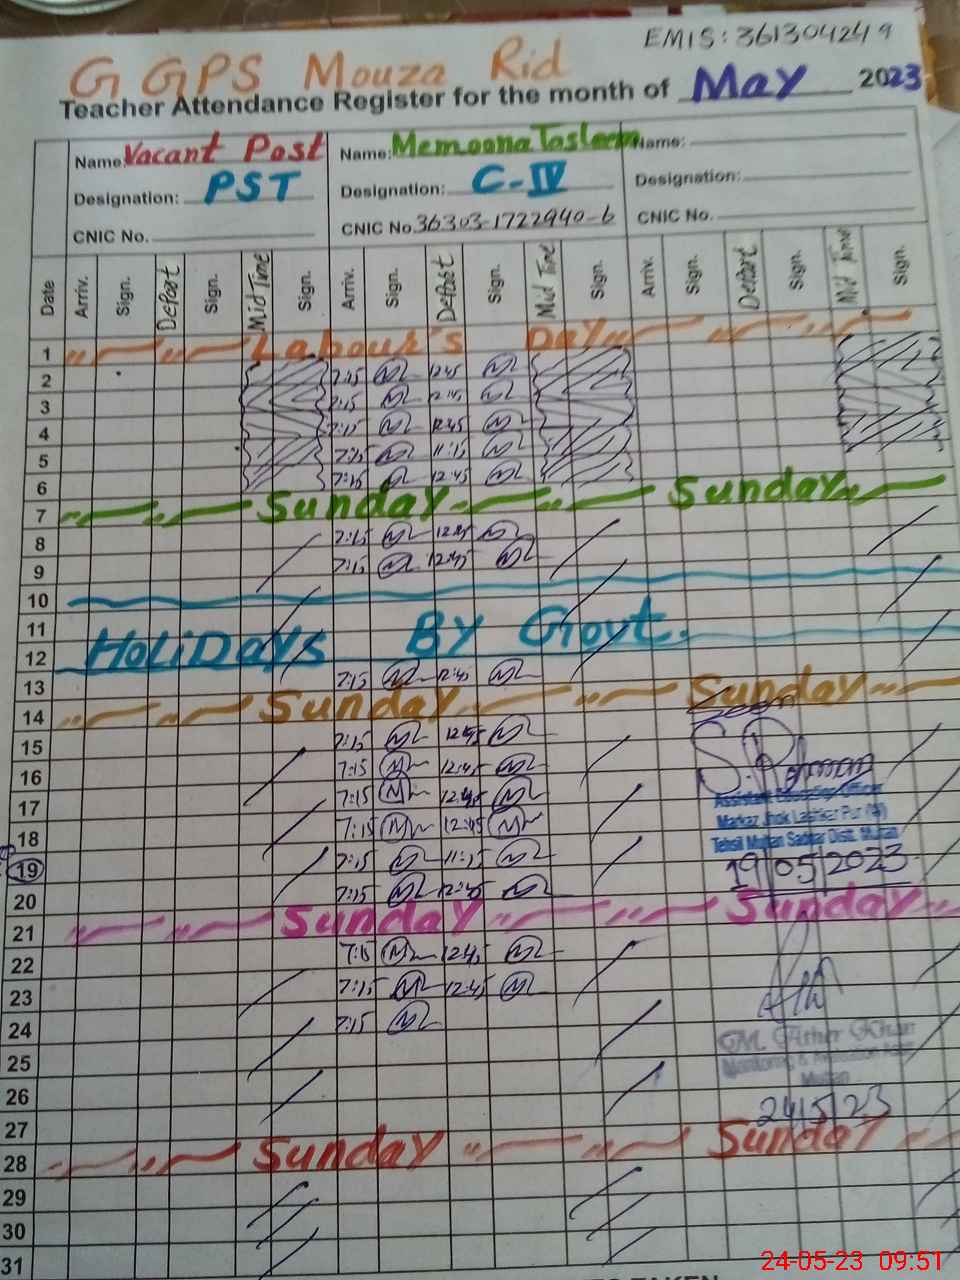 EMIS: 361304249
GGPS Mouza Rid
Teacher Attendance Register for the month of May 2023
Name: Vacant Post Name: Memoona Tasleem Name:
Designation: PST Designation: C-IV Designation:
CNIC No. CNIC No. 36303-1722940-6 CNIC No.
Date Arriv. Sign. Depart Sign. Mid Time Sign. Arriv. Sign. Depart Sign. Mid Time Sign. Arriv. Sign. Depart Sign. Mid Time Sign.
1 Labour's Day
2 7:15 12:45
3 7:15 12:45
4 7:15 12:45
5 7:15 11:15
6 7:15 12:45
7 Sunday Sunday
8 7:15 12:45
9 7:15 12:45
10
11 HoliDays By Govt.
12
13 7:15 12:45
14 Sunday Sunday
15 7:15 12:45
16 7:15 12:45
17 7:15 12:45
Assistant Education Officer
18 7:15 12:45
Tehsil Multan Saddar Distt. Multan
19 7:15 11:15
19/05/2023
20 7:15 12:45
21 Sunday Sunday
22 7:15 12:45
23 7:15 12:45
24 7:15
M. Ather Khan
25
Multan
26
24/5/23
27
28 Sunday Sunday
29
30
31
24-05-23 09:51